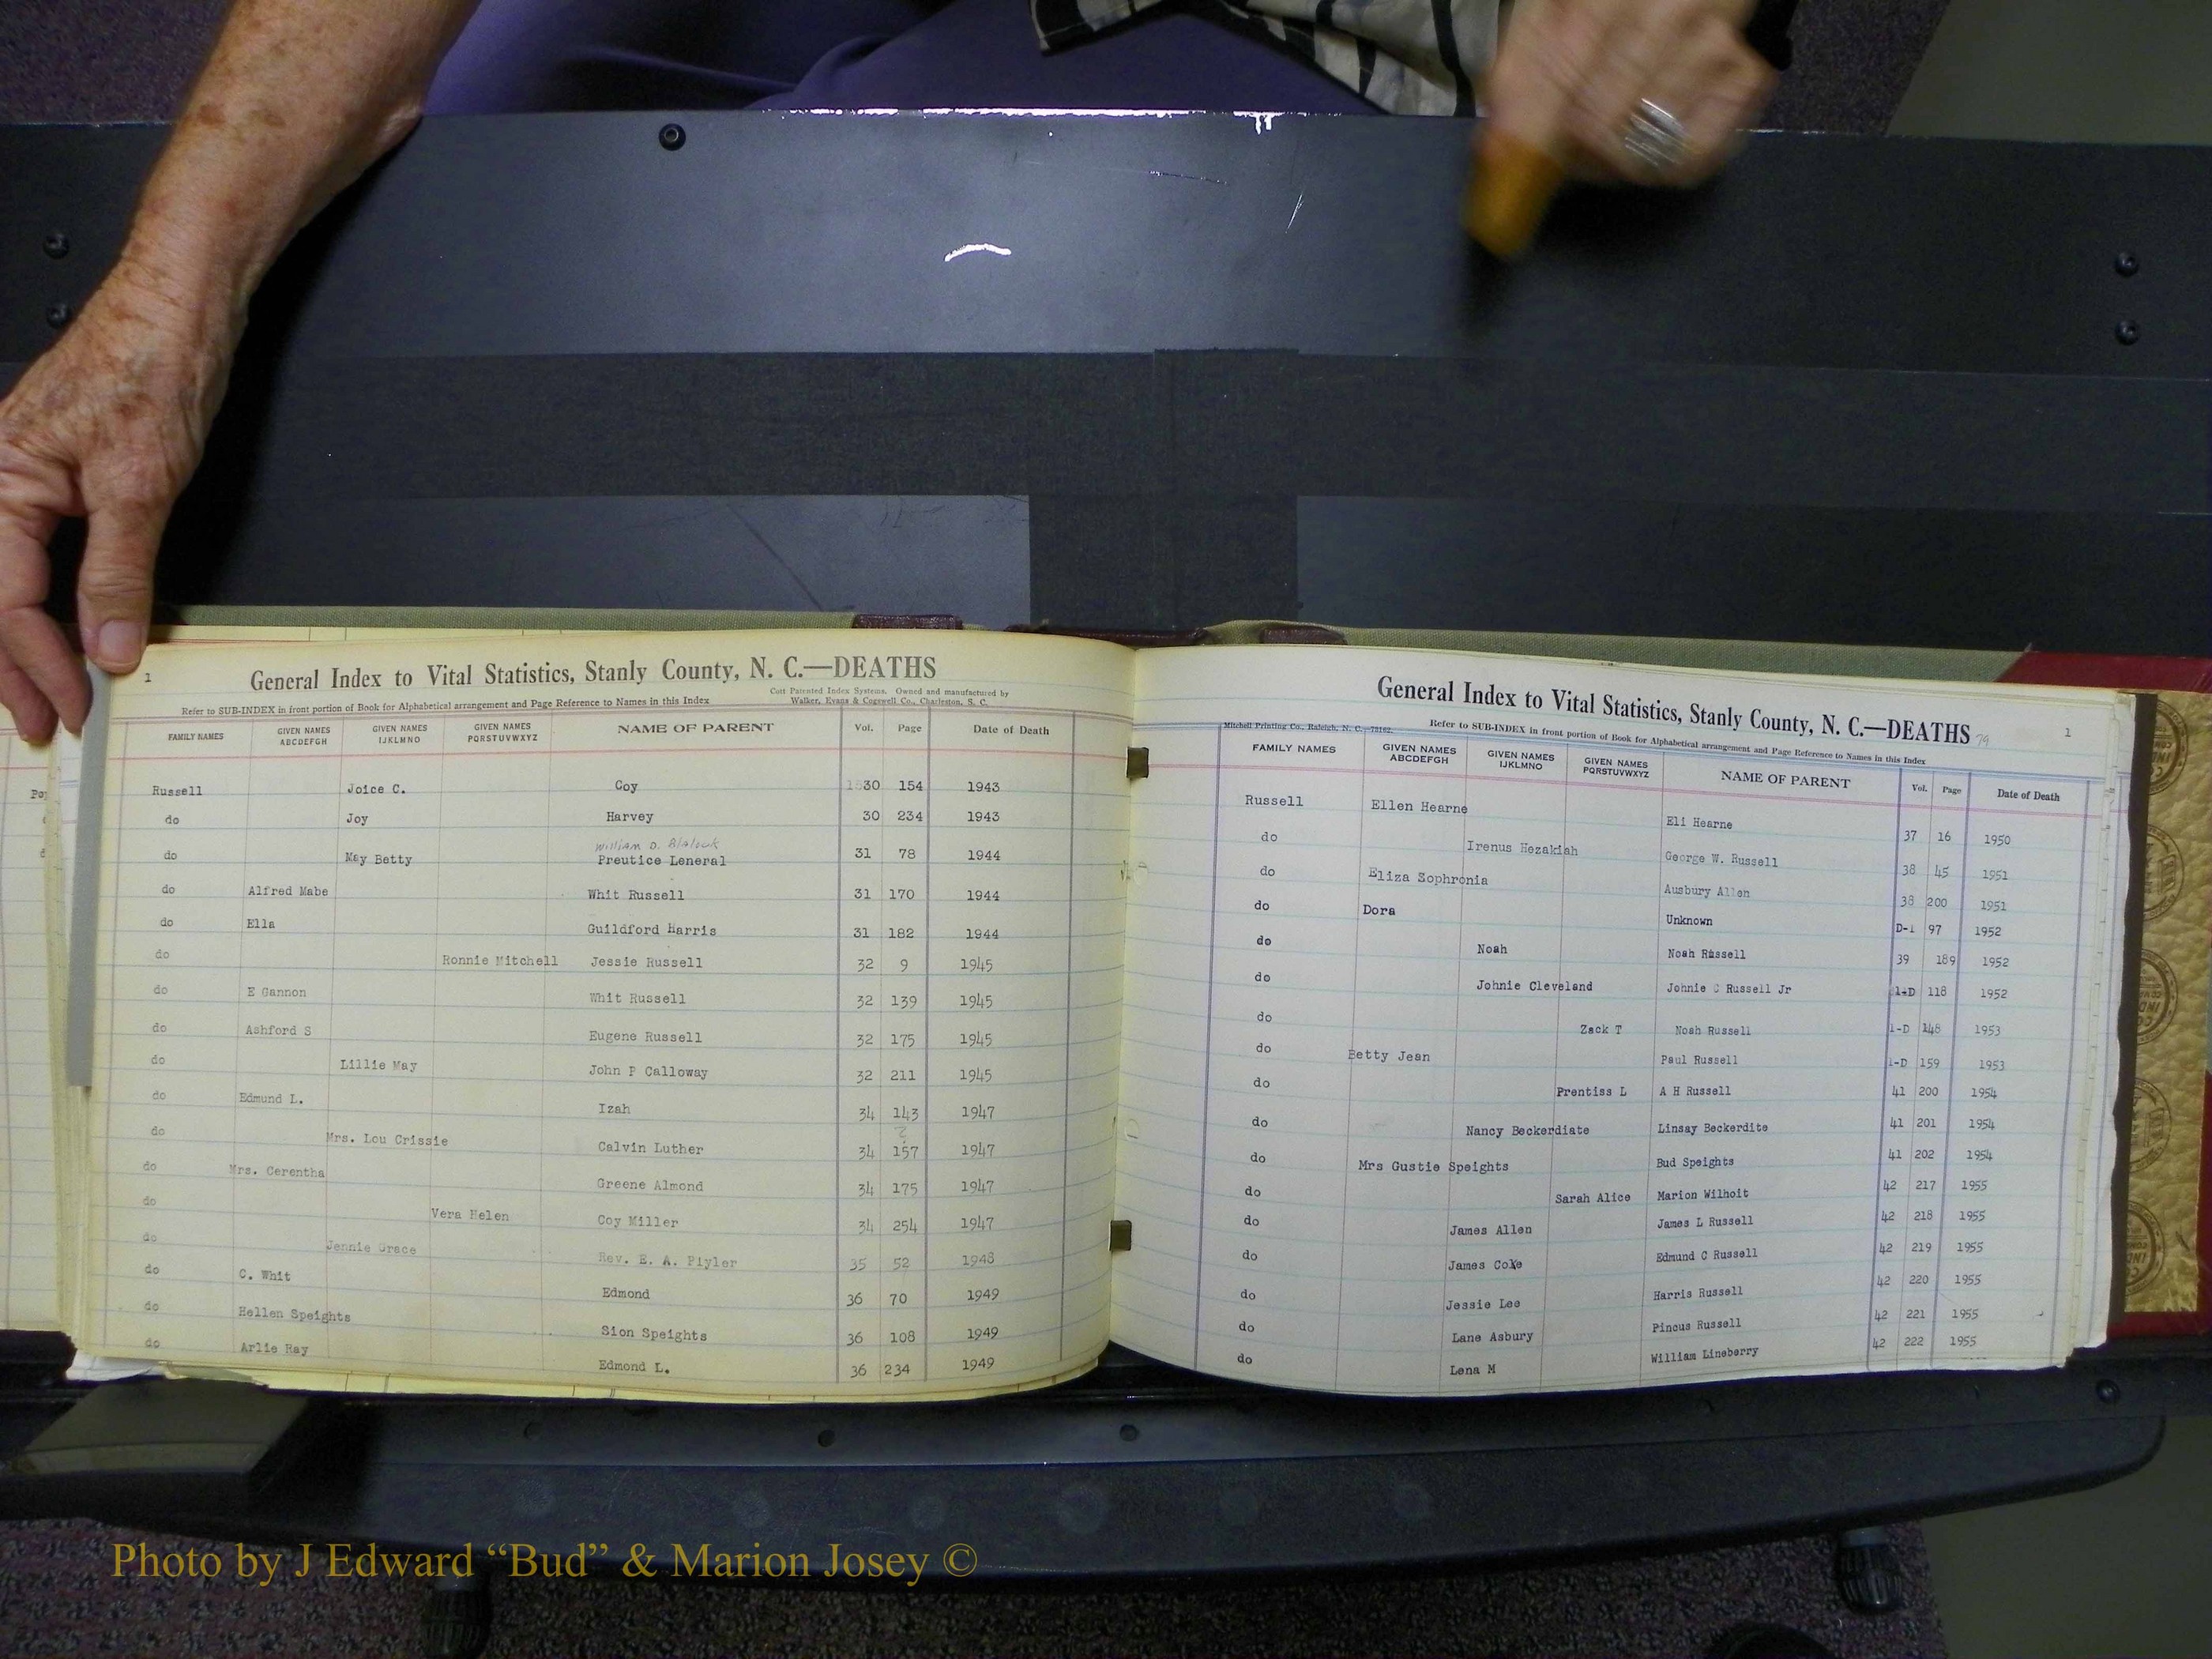 1
General Index to Vital Statistics, Stanly County, N. C.—DEATHS
Cott Patented Index Systems. Owned and manufactured by
Refer to SUB-INDEX in front portion of Book for Alphabetical arrangement and Page Reference to Names in this Index
Walker, Evans & Cogswell Co., Charleston, S. C.
FAMILY NAMES GIVEN NAMES ABCDEFGH GIVEN NAMES IJKLMNO GIVEN NAMES PQRSTUVWXYZ NAME OF PARENT Vol. Page Date of Death
Russell Joice C. Coy 30 154 1943
do Joy Harvey 30 234 1943
William D. Blalock
do May Betty Preutice Leneral 31 78 1944
do Alfred Mabe Whit Russell 31 170 1944
do Ella Guildford Harris 31 182 1944
do Ronnie Mitchell Jessie Russell 32 9 1945
do E Gannon Whit Russell 32 139 1945
do Ashford S Eugene Russell 32 175 1945
do Lillie May John P Calloway 32 211 1945
do Edmund L. Izah 34 143 1947
?
do Mrs. Lou Crissie Calvin Luther 34 157 1947
do Mrs. Cerentha Greene Almond 34 175 1947
do Vera Helen Coy Miller 34 254 1947
do Jennie Grace Rev. E. A. Plyler 35 52 1948
do C. Whit Edmond 36 70 1949
do Hellen Speights Sion Speights 36 108 1949
do Arlie Ray Edmond L. 36 234 1949
General Index to Vital Statistics, Stanly County, N. C.—DEATHS 79
1
Mitchell Printing Co., Raleigh, N. C.
Refer to SUB-INDEX in front portion of Book for Alphabetical arrangement and Page Reference to Names in this Index
FAMILY NAMES GIVEN NAMES ABCDEFGH GIVEN NAMES IJKLMNO GIVEN NAMES PQRSTUVWXYZ NAME OF PARENT Vol. Page Date of Death
Russell Ellen Hearne Eli Hearne 37 16 1950
do Irenus Hezakiah George W. Russell 38 45 1951
do Eliza Sophronia Ausbury Allen 38 200 1951
do Dora Unknown D-1 97 1952
do Noah Noah Russell 39 189 1952
do Johnie Cleveland Johnie C Russell Jr 1-D 118 1952
do Zack T Noah Russell 1-D 148 1953
do Betty Jean Paul Russell 1-D 159 1953
do Prentiss L A H Russell 41 200 1954
do Nancy Beckerdiate Linsay Beckerdite 41 201 1954
do Mrs Gustie Speights Bud Speights 41 202 1954
do Sarah Alice Marion Wilhoit 42 217 1955
do James Allen James L Russell 42 218 1955
do James Coke Edmund C Russell 42 219 1955
do Jessie Lee Harris Russell 42 220 1955
do Lane Asbury Pinous Russell 42 221 1955
do Lena M William Lineberry 42 222 1955
Photo by J Edward “Bud” & Marion Josey ©